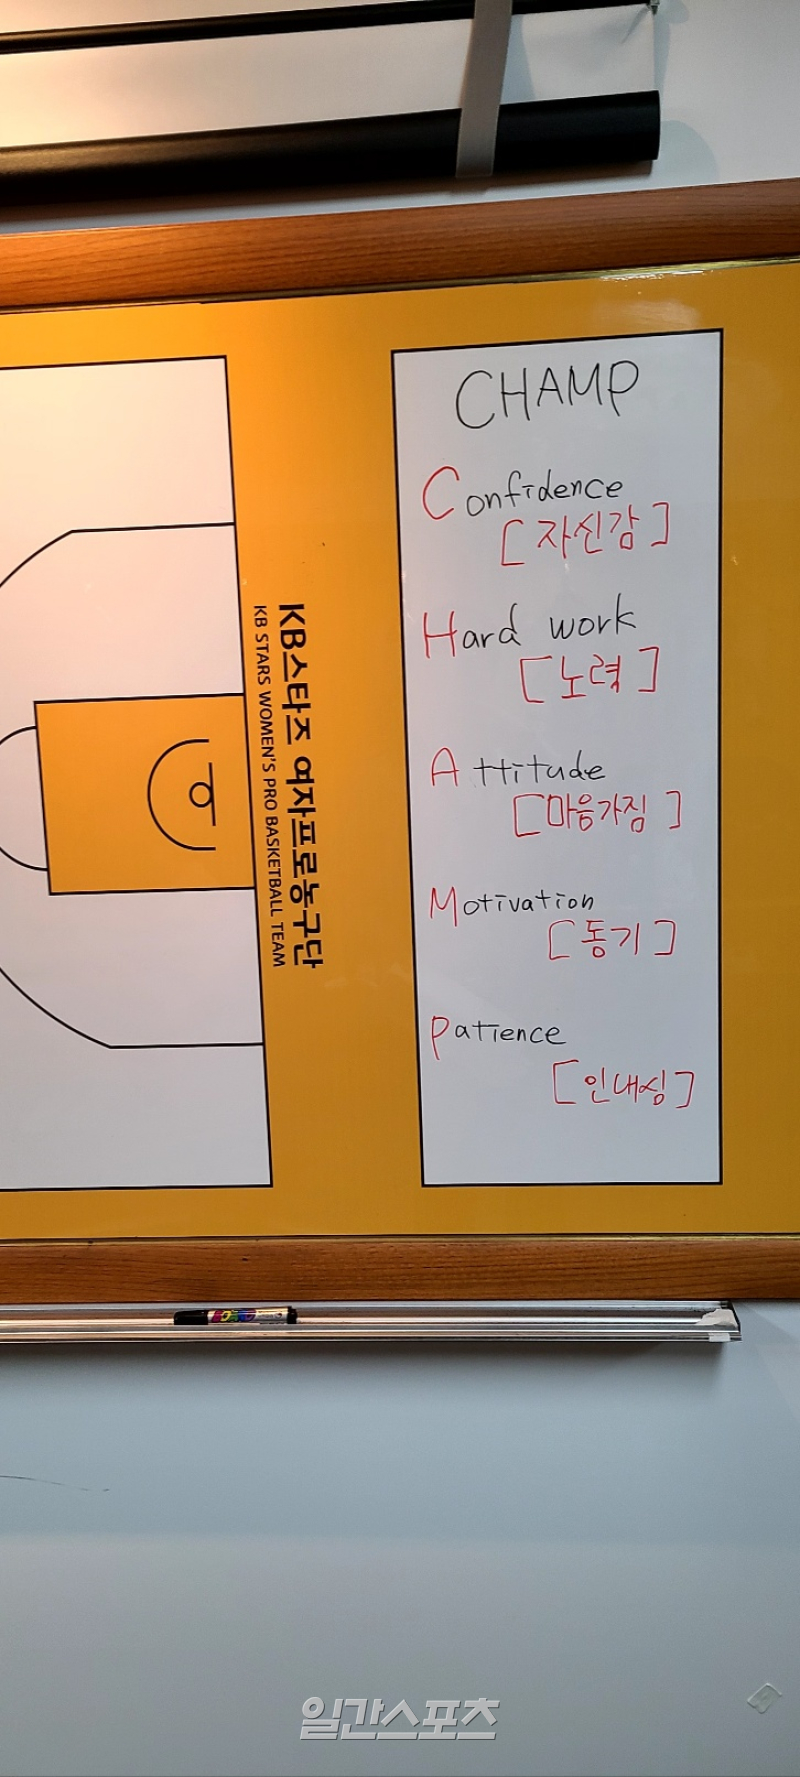 CHAMP
Confidence
[자신감]
Hard work
[노력]
Attitude
[마음가짐]
Motivation
[동기]
Patience
[인내심]
KB스타즈 여자프로농구단
KB STARS WOMEN'S PRO BASKETBALL TEAM
일간스포츠